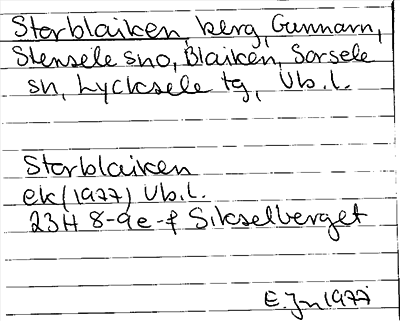 Storblaiken, berg, Gunnarn,
Stensele sno, Blaiken, Sorsele
sn, Lycksele tg, Vb.l.
Storblaiken
ek (1977) Vb.l.
23H 8-9e-f Sikselberget
E.Jn 1977